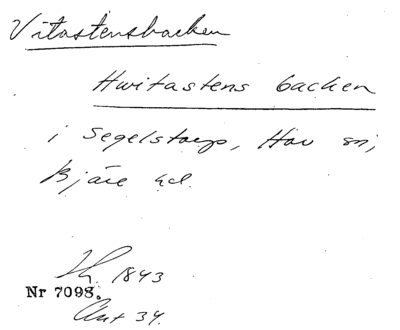 Vitastensbacken
Hwitastens backen
i Segelstorp, Hov sn,
Bjäre hd.
1843
Nr 7098.
Ant 34.